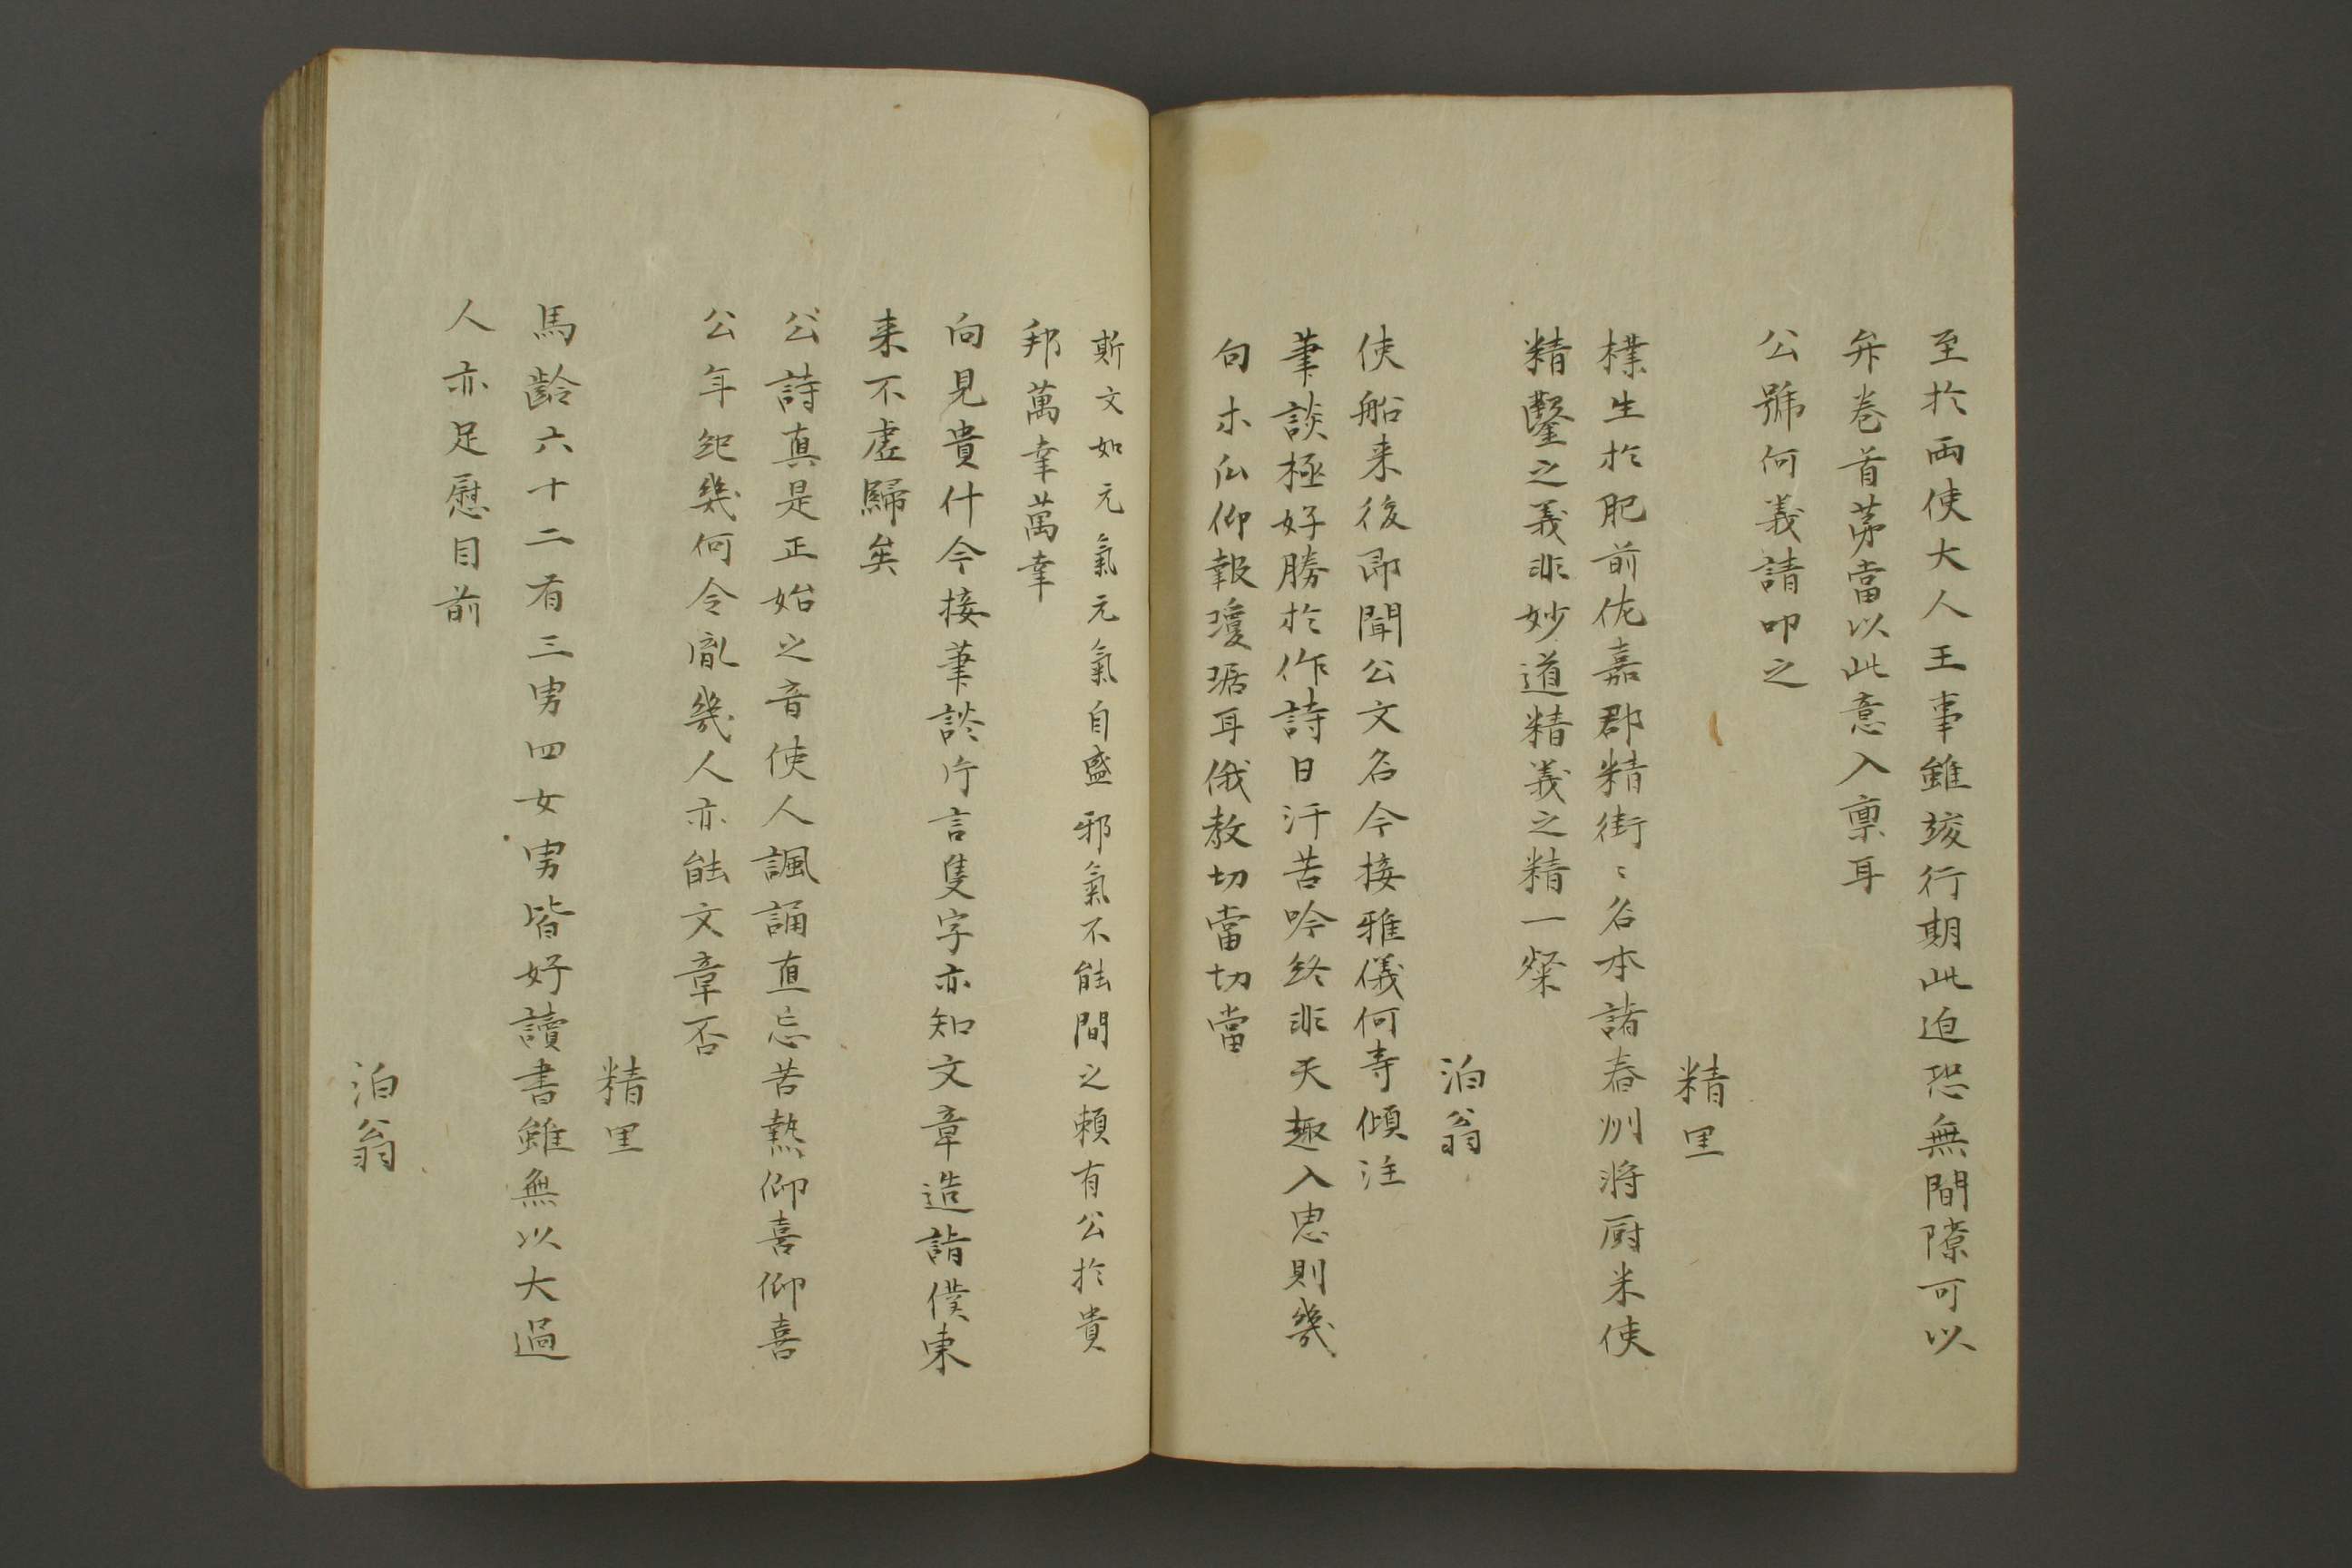 至於兩使大人王事雖竣行期此迫恐無間隙可以
弁卷首苐當以此意入禀耳
公號何義請叩之
精里
樸生於肥前佐嘉郡精街〻名本諸舂州將厨米使
精鑿之義非妙道精義之精一粲
泊翁
使船来後即聞公文名今接雅儀何等傾注
筆談極好勝於作詩日汗苦吟終非天趣入思則幾
句木瓜仰報瓊琚耳俄教切當切當
斯文如元氣元氣自盛邪氣不能間之頼有公於貴
邦萬幸萬幸
向見貴什今接筆談片言隻字亦知文章造詣僕東
来不虚歸矣
公詩真是正始之音使人諷誦直忘苦熱仰喜仰喜
公年紀幾何令胤幾人亦能文章否
精里
馬齡六十二有三男四女男皆好讀書雖無以大過
人亦足慰目前
泊翁